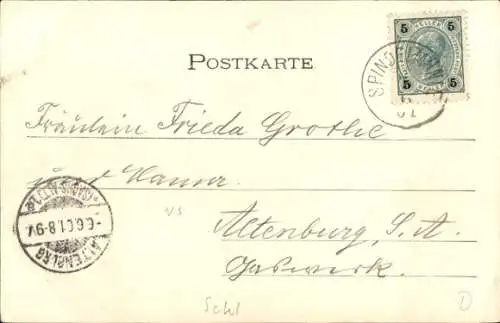 5 5
5 5
SPIND
01
POSTKARTE
Fräulein Frieda Grothe
Altenburg, S. A.
Gaswerk.
-6.6.01.8-9V.
ALTENBURG
vs
Schl
D